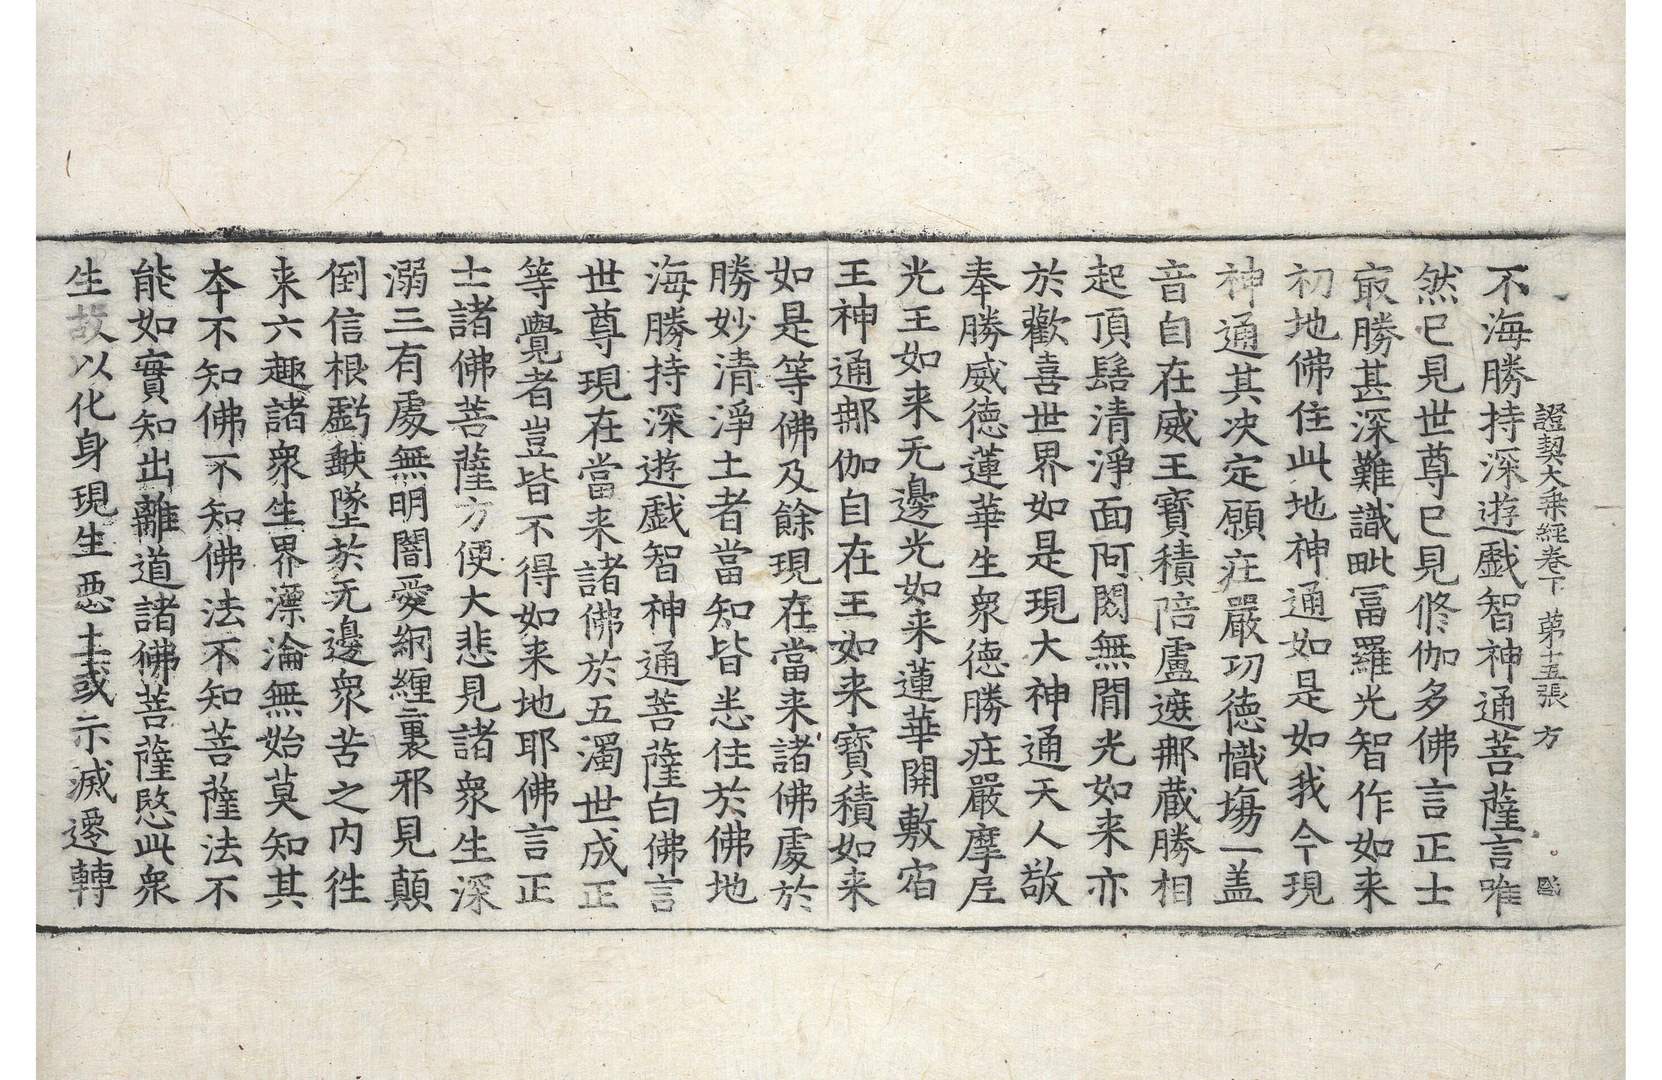 證契大乘經卷下 第十五張 方
不海勝持深遊戲智神通菩薩言唯
然已見世尊已見修伽多佛言正士
㝡勝甚深難識毗富羅光智作如来
初地佛住此地神通如是如我今現
神通其决定願㽵嚴功德幟塲一盖
音自在威王寶積陪盧遮那藏勝相
起頂髻清淨面阿閦無閒光如来亦
於歡喜世界如是現大神通天人敬
奉勝威德蓮華生衆德勝㽵嚴摩尼
光王如来无邊光如来蓮華開敷宿
王神通那伽自在王如来寶積如来
如是等佛及餘現在當来諸佛處於
勝妙清淨土者當知皆悉住於佛地
海勝持深遊戲智神通菩薩白佛言
世尊現在當来諸佛於五濁世成正
等覺者豈皆不得如来地耶佛言正
士諸佛菩薩方便大悲見諸衆生深
溺三有處無明闇愛網纏裹邪見顛
倒信根虧䡾墜於无邊衆苦之内徃
来六趣諸衆生界漂淪無始莫知其
夲不知佛不知佛法不知菩薩法不
能如實知出離道諸佛菩薩愍此衆
生故以化身現生惡土或示滅遷轉